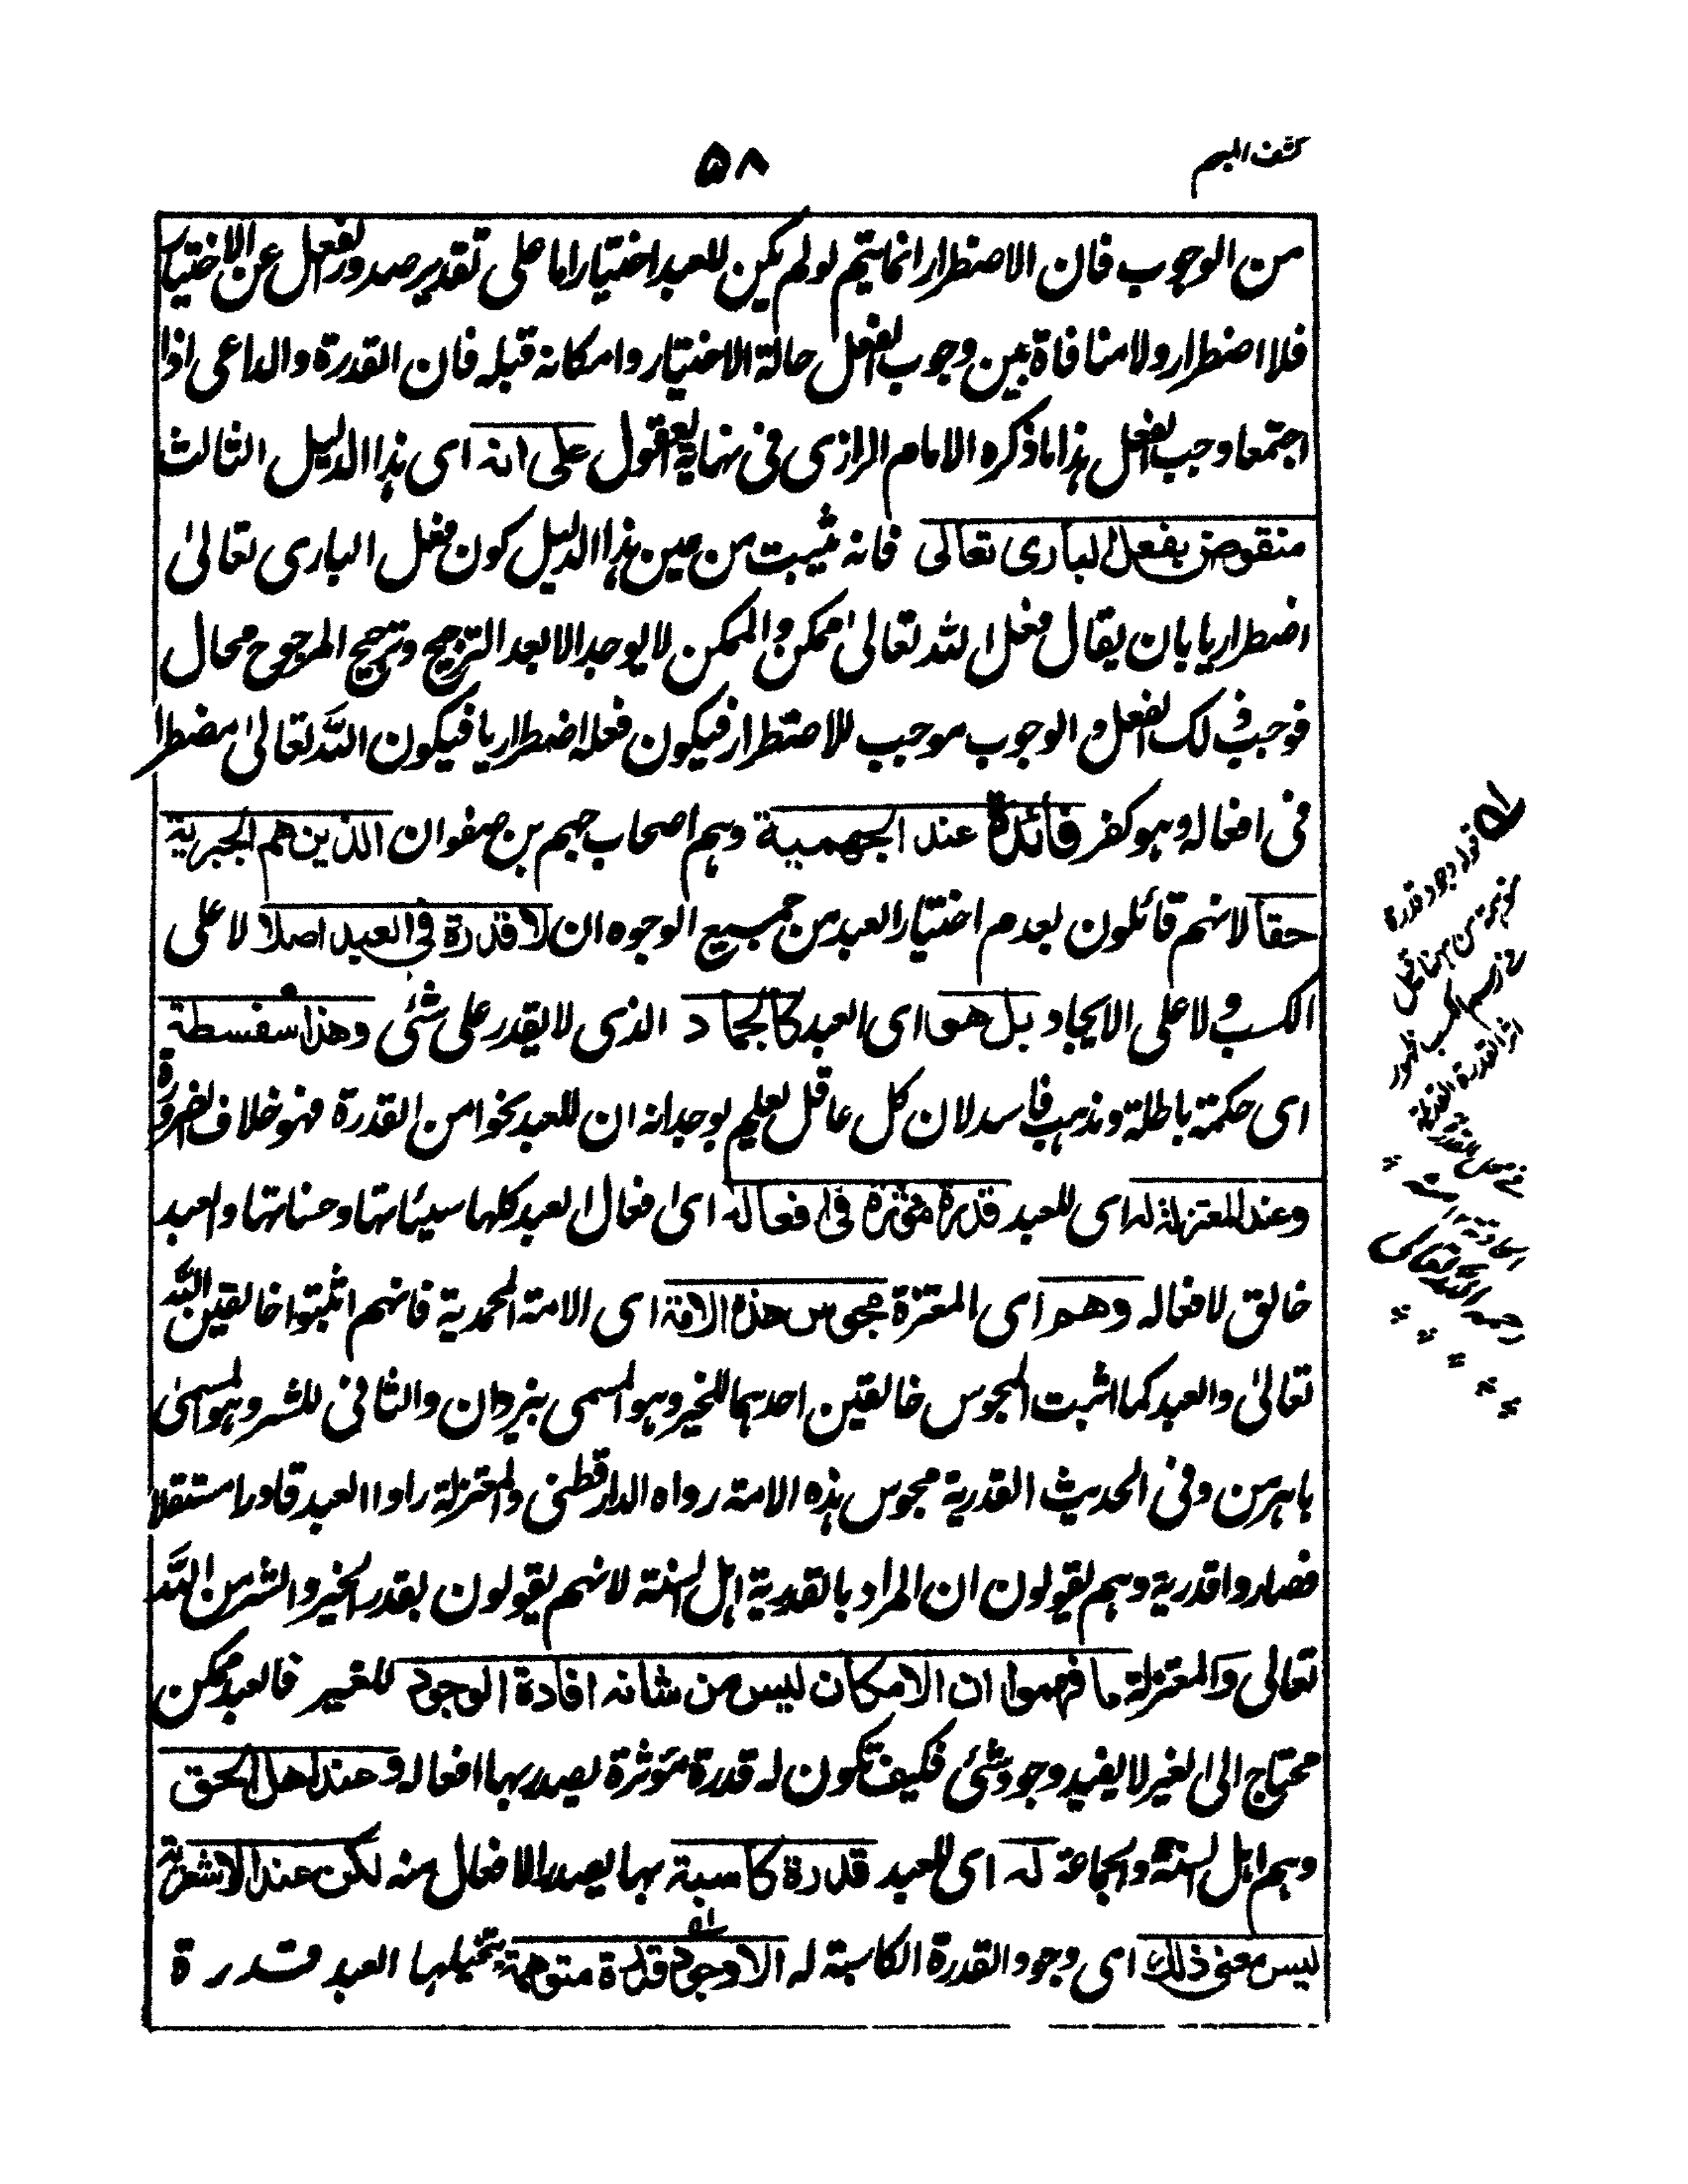 كشف المبهم
٥٨
من الوجوب فان الاضطرار انما يتم لو لم يكن للعبد اختيار اما على تقدير صدور الفعل عن الاختيار
فلا اضطرار ولا منافاة بين وجوب الفعل حالة الاختيار وامكانه قبله فان القدرة والداعى اذا
اجتمعا وجب الفعل هذا ما ذكره الامام الرازى فى نهاية العقول على انه اى هذا الدليل الثالث
منقوض بفعل البارى تعالى فانه يثبت من عين هذا الدليل كون فعل البارى تعالىٰ
اضطراريا بان يقال فعل اللّٰه تعالىٰ ممكن والممكن لا يوجد الا بعد الترجيح وترجيح المرجوح محال
فوجب ذلك الفعل والوجوب موجب للاضطرار فيكون فعله اضطراريا فيكون اللّٰه تعالىٰ مضطرا
فى افعاله وهو كفر فائدة عند الجهمية وهم اصحاب جهم بن صفوان الذين هم الجبرية
حقا لانهم قائلون بعدم اختيار العبد من جميع الوجوه ان لا قدرة فى العبد اصلا لا على
الكسب ولا على الايجاد بل هو اى العبد كالجماد الذى لا يقدر على شئى وهذا سفسطة
اى حكمة باطلة ومذهب فاسد لان كل عاقل يعلم بوجدانه ان للعبد نحوا من القدرة فهو خلاف الضرورة
وعند المعتزلة له اى للعبد قدرة مؤثرة فى افعاله اى افعال العبد كلها سيئاتها وحسناتها والعبد
خالق لافعاله وهم اى المعتزلة مجوس هذه الامة اى الامة المحمدية فانهم اثبتوا خالقين اللّٰه
تعالىٰ والعبد كما اثبت المجوس خالقين احدهما للخير وهو المسمى بيزدان والثانى للشر وهو المسمىٰ
باهرمن وفى الحديث القدرية مجوس هذه الامة رواه الدارقطنى والمعتزلة راوا العبد قادرا مستقلا
فصاروا قدرية وهم يقولون ان المراد بالقدرية اهل السنة لانهم يقولون بقدر الخير والشر من اللّٰه
تعالى والمعتزلة ما فهموا ان الامكان ليس من شانه افادة الوجود للغير فالعبد ممكن
محتاج الى الغير لا يفيد وجود شئى فكيف تكون له قدرة مؤثرة يصدر بها افعاله وعند اهل الحق
وهم اهل السنة والجماعة له اى للعبد قدرة كاسبة بها يصدر الافعال منه لكن عند الاشعرية
ليس معنى ذلك اى وجود القدرة الكاسبة له الا وجود قدرة متوهمة يتخيلها العبد قدرة
له قوله وجود قدرة
رحمه اللّٰه تعالى